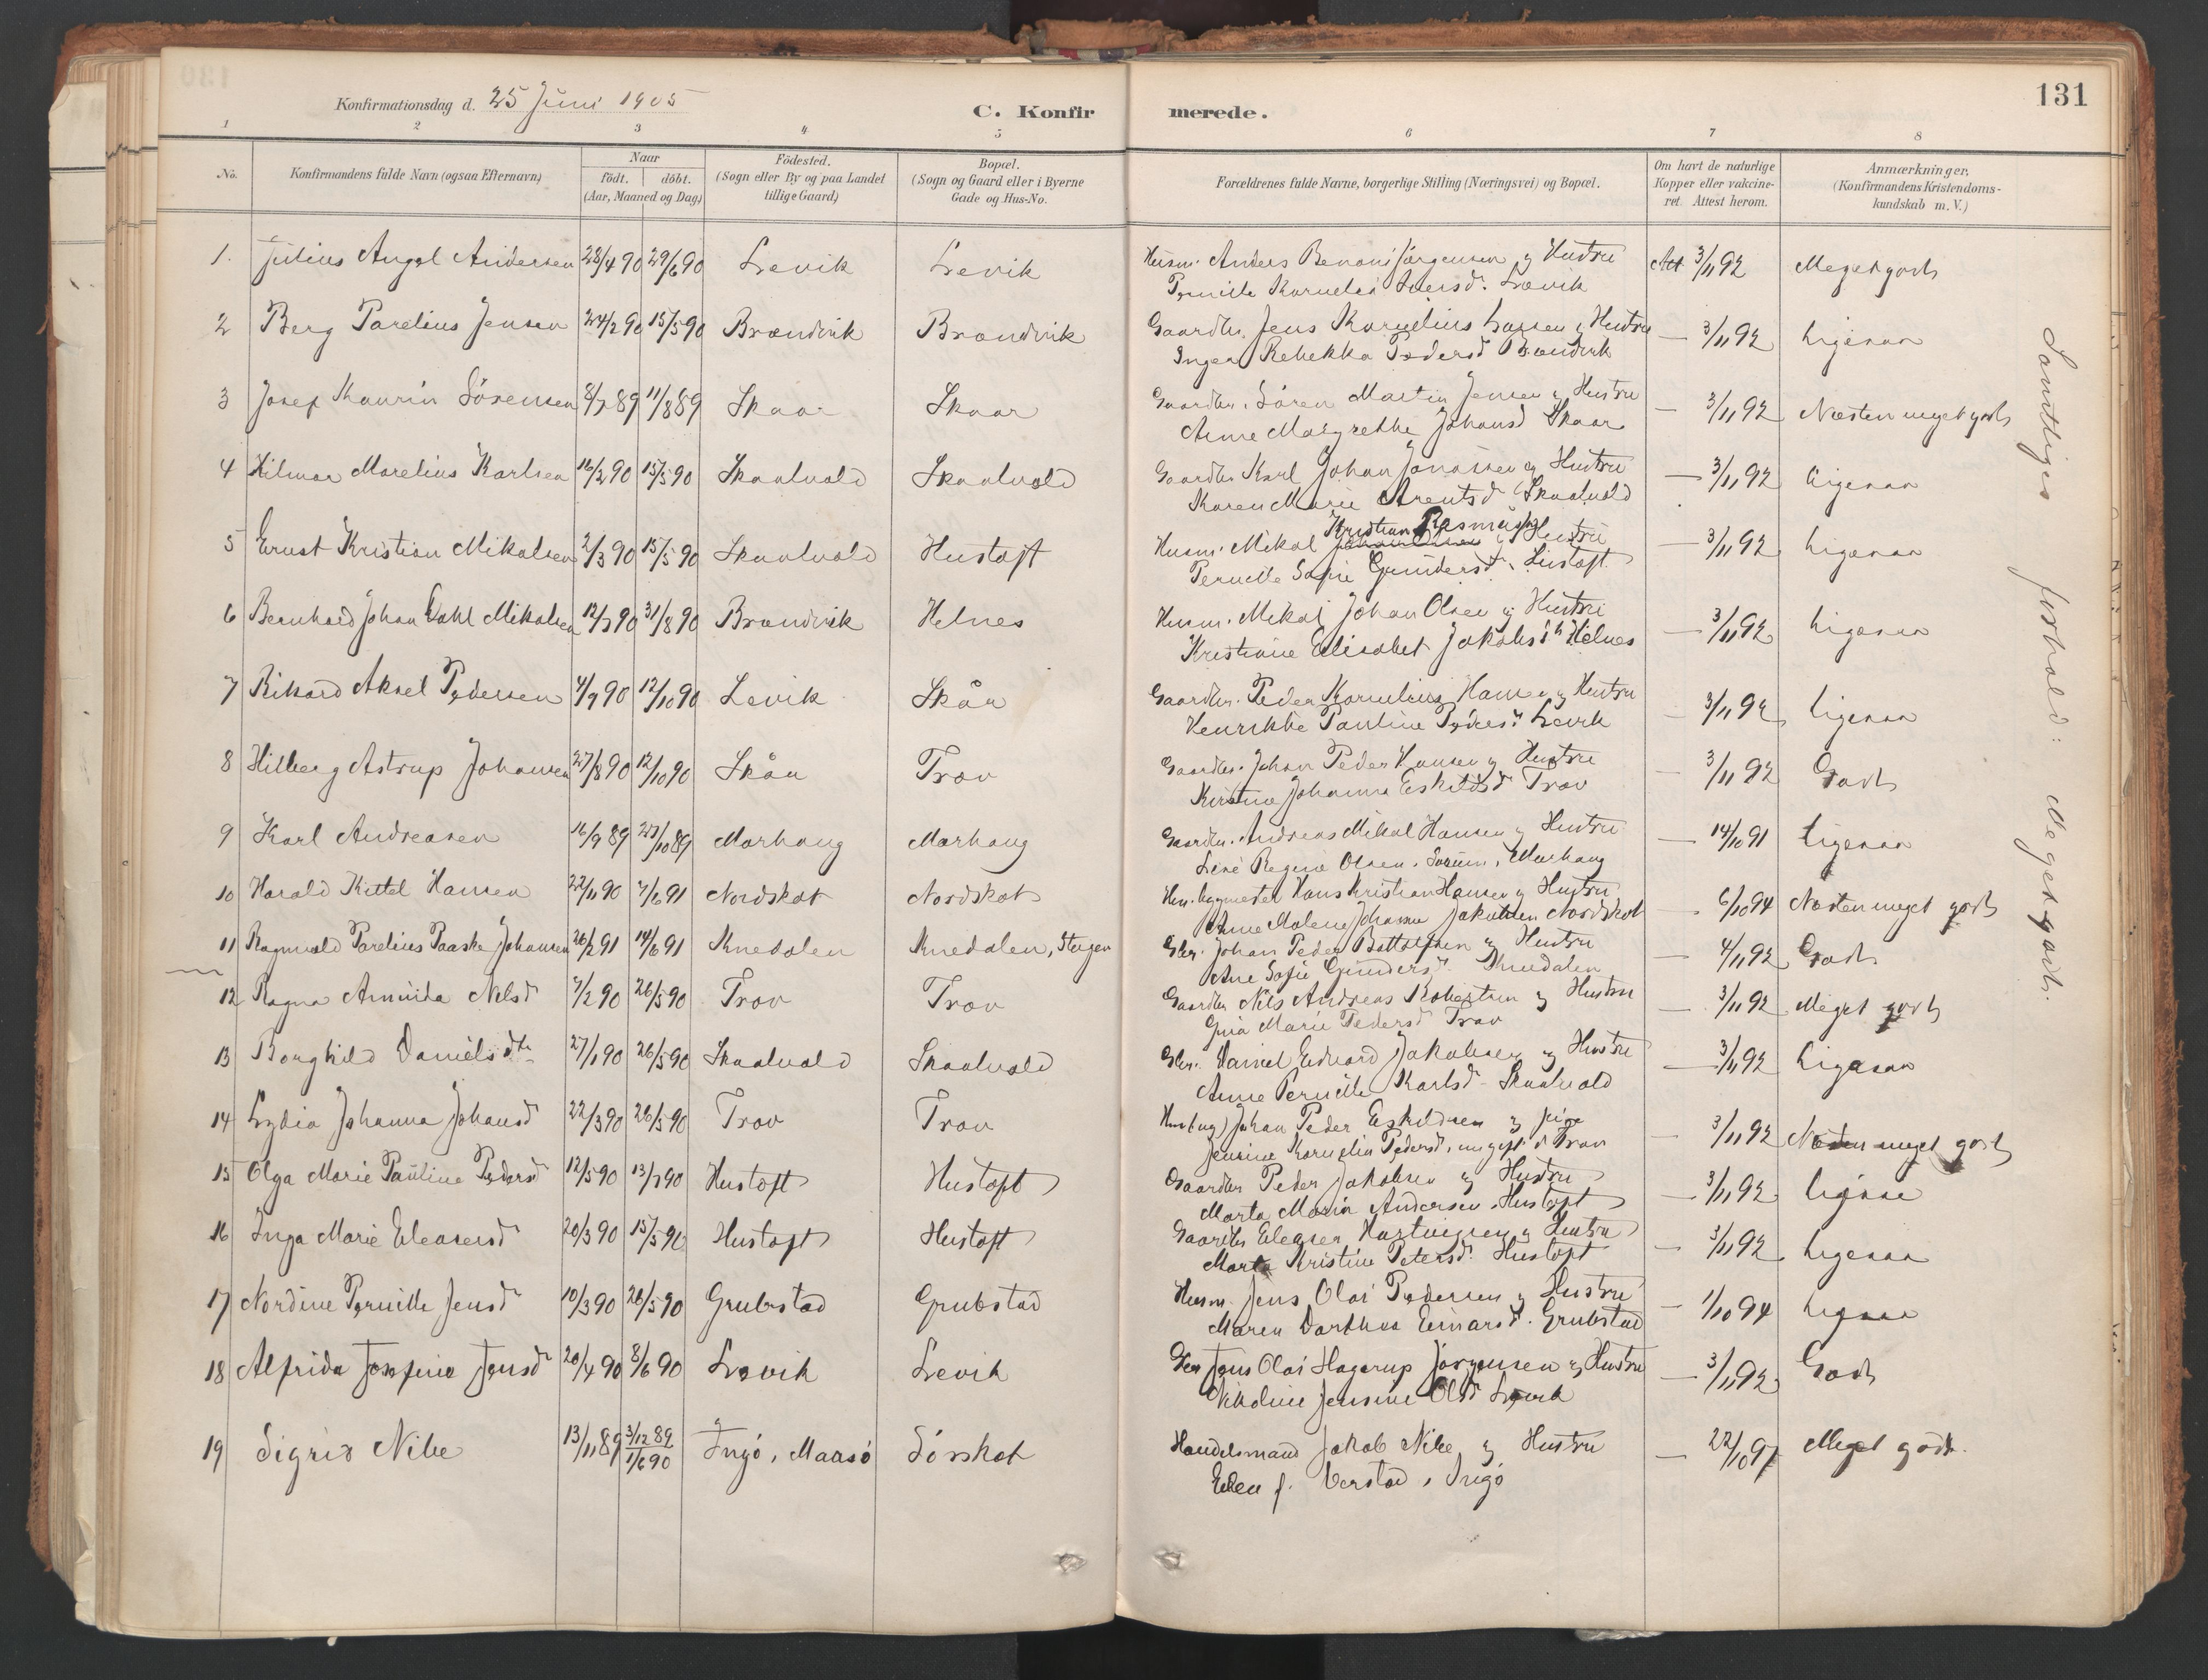 131
Konfirmationsdag d. 25 Juni 1905
C. Konfir merede.
1 2 3 4 5 6 7 8
No.
Konfirmandens fulde Navn (ogsaa Efternavn)
Naar
födt. döbt.
(Aar, Maaned og Dag)
Födested.
(Sogn eller By og paa Landet
tillige Gaard)
Bopæl.
(Sogn og Gaard eller i Byerne
Gade og Hus-No.
Forældrenes fulde Navne, borgerlige Stilling (Næringsvei) og Bopæl.
Om havt de naturlige
Kopper eller vakcine-
ret. Attest herom.
Anmærkninger.
(Konfirmandens Kristendoms-
kundskab m. V.)
1. Julius Angel Andersen 28/4 90 29/6 90 Levik Levik Husm. Anders Benoni Jørgensen og Hustru Att 3/11 92 Meget godt
Pernille Kornelia Levik
2 Berg Parelius Jensen 24/2 90 15/5 90 Brændvik Brændvik Gaardbr. Jens Kornelius Larsen og Hustru — 3/11 92 Ligesaa
Inger Rebekka Pedersd Brændvik
3 Josef Kaurin Sörensen 8/7 89 11/8 89 Skaar Skaar Gaardbr. Sören Martin Jensen og Hustru — 3/11 92 Næsten meget godt
Anne Margrethe Johansd Skaar
4 Hilmar Marelius Karlsen 16/2 90 15/5 90 Skaalvold Skaalvold Gaardbr. Karl Johan Jonassen og Hustru — 3/11 92 Ligesaa
Karen Marie Arentsd Skaalvold
5 Ernst Kristian Mikalsen 2/3 90 15/5 90 Skaalvold Hustoft Husm. Mikal Kristian Rasmussen og Hustru — 3/11 92 Ligesaa
Pernille Sofie Gundersd. Hustoft
6 Bernhard Johan Dahl Mikalsen 12/7 90 31/8 90 Brændvik Helnes Husm. Mikal Johan Olsen og Hustru — 3/11 92 Ligesaa
Kristiane Elisabet Jakobsd Helnes
7 Rikard Aksel Pedersen 4/9 90 12/10 90 Levik Skåa Gaardbr. Peder Kornelius Hansen og Hustru — 3/11 92 Ligesaa
Henrikke Pauline Pedersd Levik
8 Hilberg Astrup Johansen 27/8 90 12/10 90 Skåa Trov Gaardbr. Johan Peder Hansen og Hustru — 3/11 92 Godt
Kirstine Johanna Eskildsd Trov
9 Karl Andreasen 16/9 89 27/10 89 Marhaug Marhaug Gaardbr. Andreas Mikal Hansen og Hustru — 14/10 91 Ligesaa
Lene Regine Olsen. Marhaug
10 Harald Kittel Hansen 22/11 90 7/6 91 Nordskot Nordskot Hans Kristian Hansen og Hustru — 6/10 94 Næsten meget godt
Anne Malene Johanna Jakobsen Nordskot
11 Ragnvald Parelius Paaske Johansen 26/2 91 14/6 91 Knedalen Knedalen, Steigen Gbr. Johan Peder og Hustru — 4/11 92 Godt
Ane Sofie Gundersd. Knedalen
12 Ragna Aminda Nilsd 7/2 90 26/5 90 Trov Trov Gaardbr Nils Andreas Robertsen og Hustru — 3/11 92 Meget godt
Gina Marie Pedersd Trov
13 Borghild Danielsdtr 27/1 90 26/5 90 Skaalvold Skaalvold Gbr. Daniel Edvard Jakobsen og Hustru — 3/11 92 Ligesaa
Anne Pernille Karlsd Skaalvold
14 Lydia Johanna Johansd 22/3 90 26/5 90 Trov Trov Johan Peder Eskildsen og pige — 3/11 92 Næsten meget godt
Jensine Kornelia Pedersd, Trov
15 Olga Marie Pauline Pedersd 12/5 90 13/7 90 Hustoft Hustoft Gaardbr Peder Jakobsen og Hustru — 3/11 92 Ligesaa
Marta Maria Andersen. Hustoft
16 Inga Marie Eleasersd 20/3 90 15/5 90 Hustoft Hustoft Gaardbr Eleaser Hartvigsen og Hustru — 3/11 92 Ligesaa
Marta Kristine Petersd. Hustoft
17 Nordine Pernille Jensd 10/3 90 26/5 90 Grubstad Grubstad Husm. Jens Olai Pedersen og Hustru — 1/10 94 Ligesaa
Maren Dorthea Einarsd. Grubstad
18 Alfrida Josefine Jensd 20/4 90 8/6 90 Levik Levik Gbr Jens Olai Hagerup Jörgensen og Hustru — 3/11 92 Godt
Nikoline Jensine Olsd Levik
19 Sigrid Nibe 13/11 89 3/12 89 1/6 90 Ingö, Maasö Sörskot Handelsmand Jakob Nibe og Hustru — 22/10 97 Meget godt.
Ellen f. Verstad, Ingö
Samtliges forhold: Meget godt.